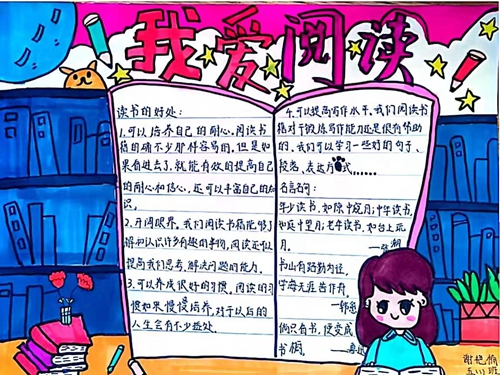 我爱阅读
读书的好处：
1.可以培养自己的耐心,阅读书
籍的确不少那件容易的,但是如
果看进去了,就能有效的提高自己
的耐心和信心,还可以丰富自己的知
识。
2.开阔眼界。我们阅读书籍能够了
解和认识许多有趣的事物,阅读还可以
提高我们思考、解决问题的能力。
3.可以养成很好的习惯。阅读的习
惯如果慢慢培养,对于以后的
人生会有不少益处.
4.可以提高写作水平。我们阅读书
籍对于锻炼写作能力还是很有帮助
的。我们可以学习一些好的句子、
段落、表达方式……
名言名句：
年少读书,如隙中窥月;中年读书,
如庭中望月;老年读书,如台上玩
月。
书山有路勤为径,
学海无涯苦作舟
书
五